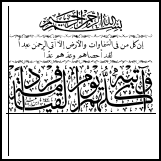 بسم الله الرحمن الرحيم
إن كل من في السماوات والأرض إلا آتي الرحمن عبدا
لقد أحصاهم وعدهم عدا
وكلهم آتيه يوم القيامة فردا